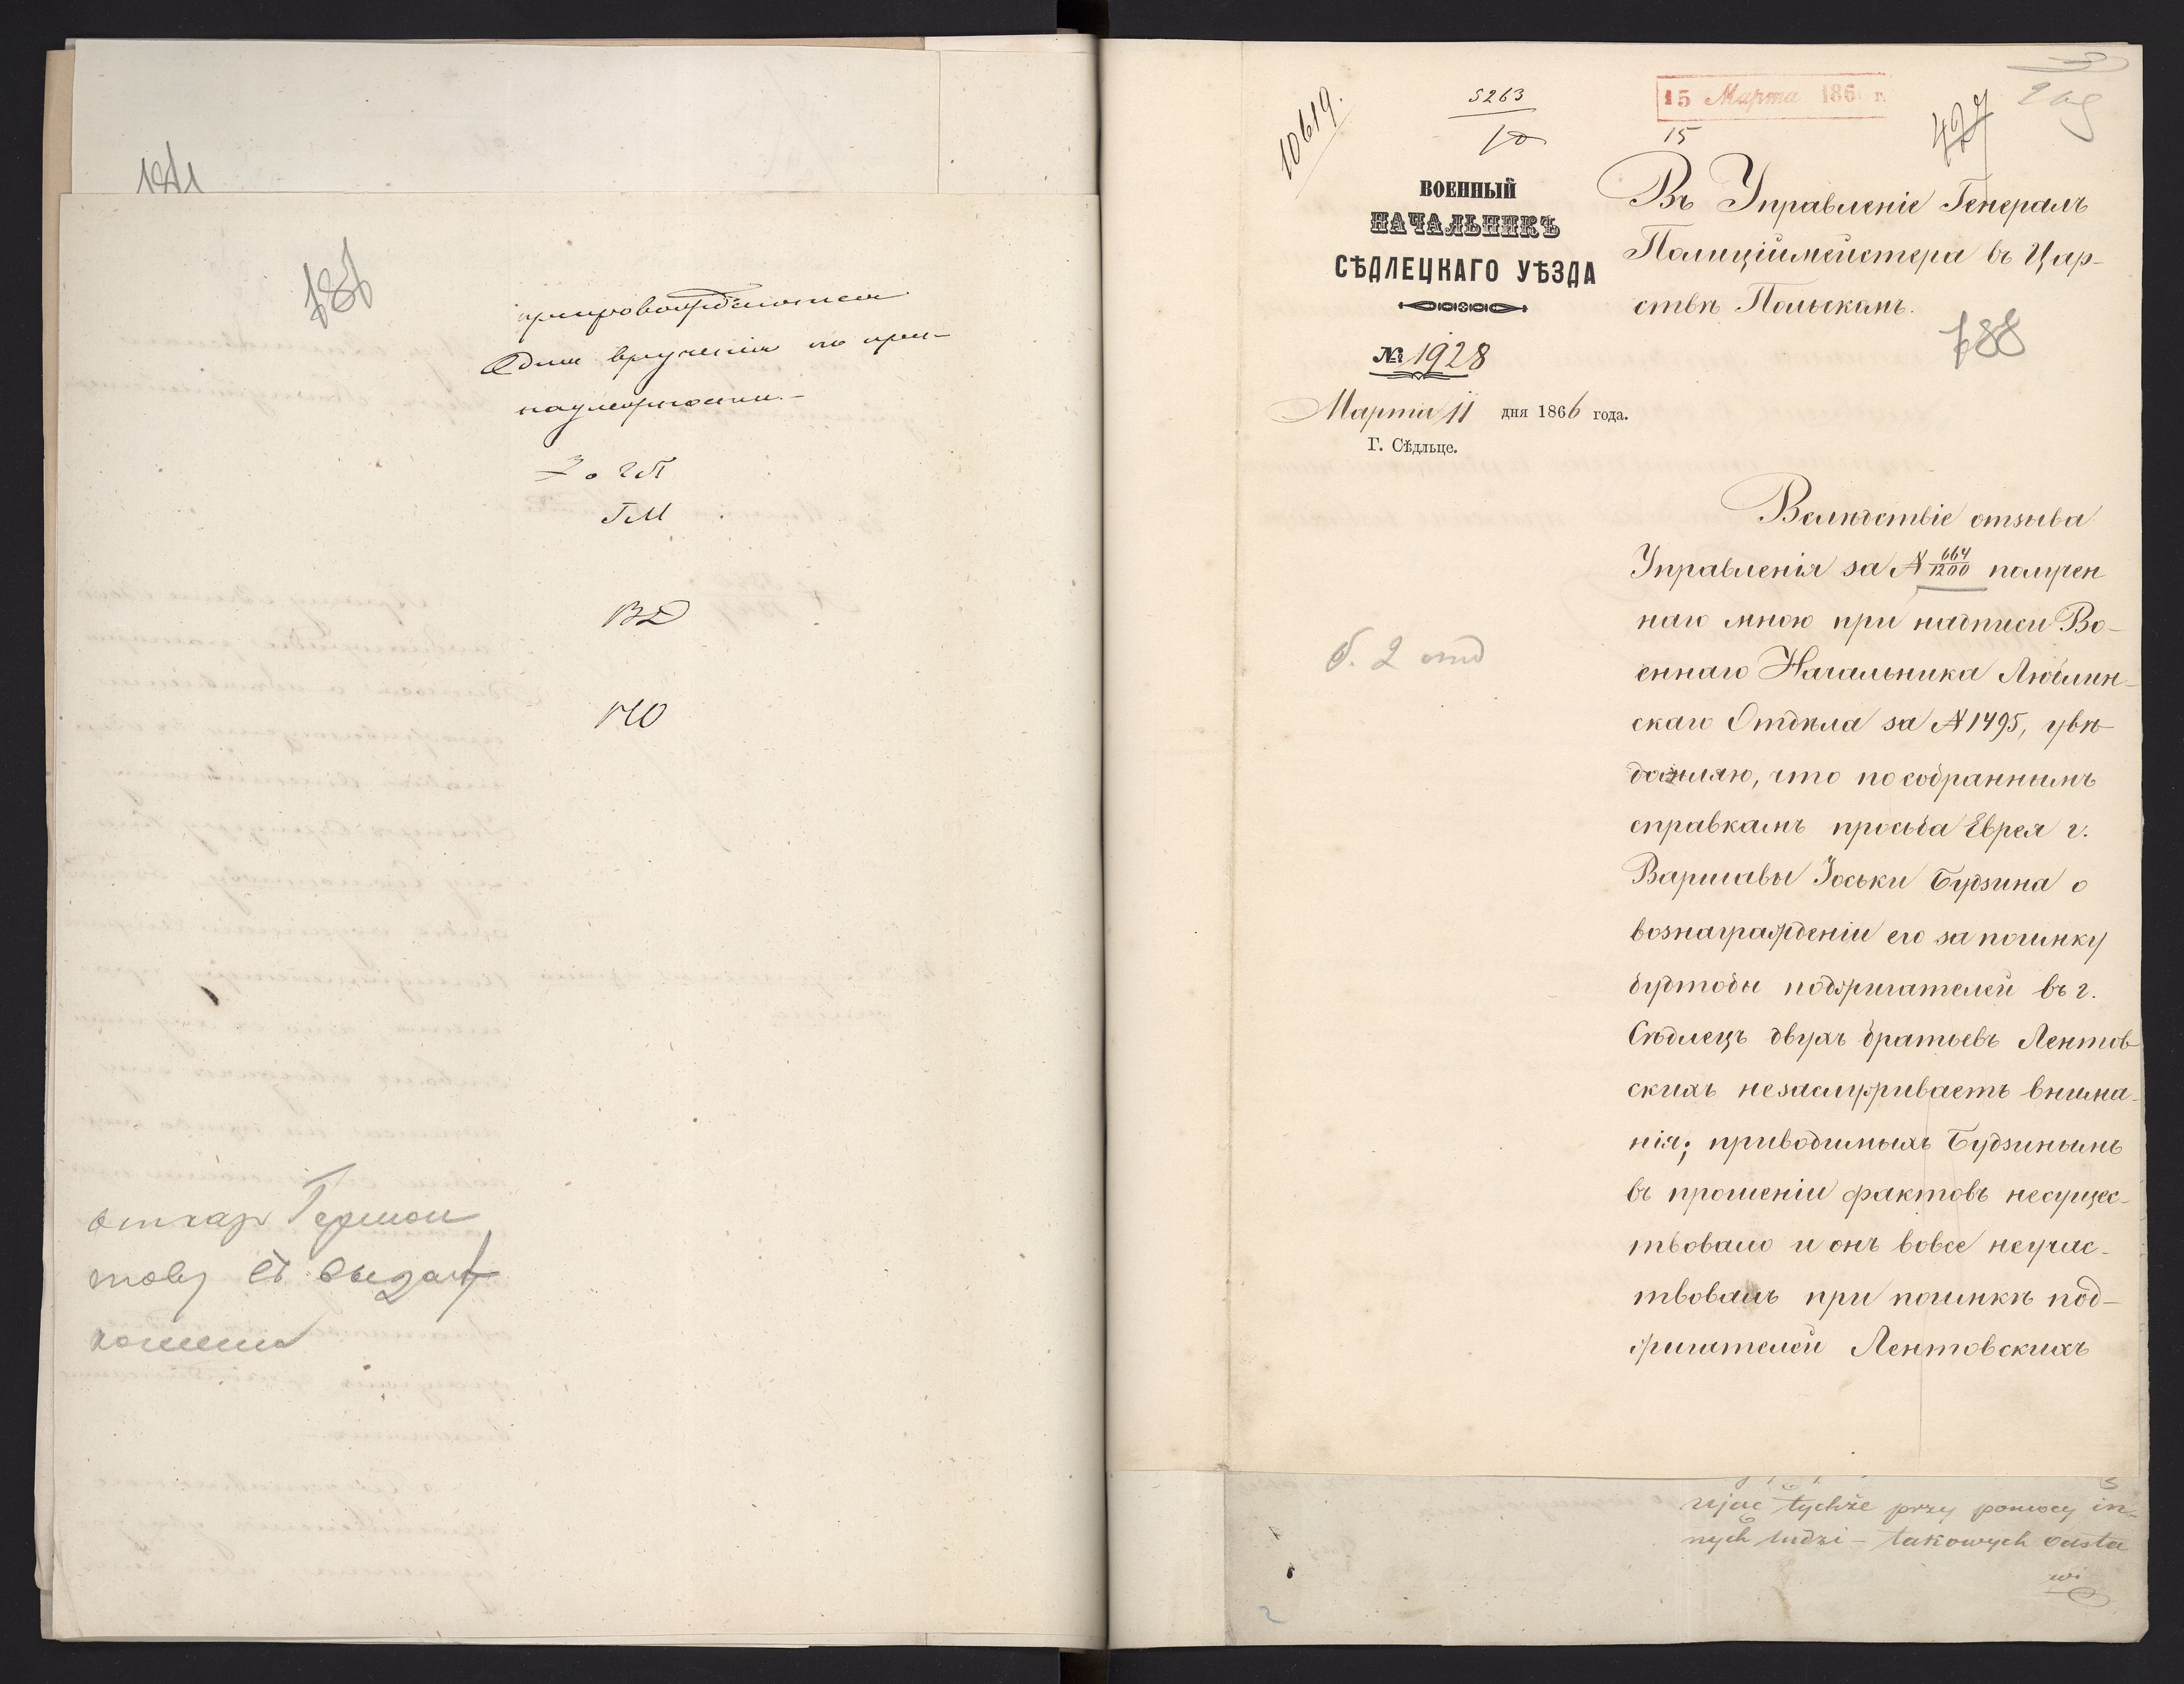 187
препровождается
для врученія по при-
надлежности.-
ГМ
ВД
НО
10619.
5263
10
15 Марта 186 г.
15
427
ВОЕННЫЙ
НАЧАЛЬНИКЪ
СѢДЛЕЦКАГО УѢЗДА
№ 1928
Марта 11 дня 1866 года.
Г. Сѣдльце.
Въ Управленіе Генералъ
Полиціймейстера въ Цар-
ствѣ Польскомъ.
188
б. 2 отд
Вслѣдствіе отзыва
Управленія за № 664/1200 получен
наго мною при надписи Во-
еннаго Начальника Люблин-
скаго Отдѣла за № 1495, увѣ-
домляю, что по собраннымъ
справкамъ просьба Еврея г.
Варшавы Іоськи Будзина о
вознагражденіи его за поимку
будтобы поджигателей въ г.
Сѣдлецъ двухъ братьевъ Лентов-
скихъ незаслуживаетъ внима-
нія; приводимыхъ Будзинымъ
въ прошеніи фактовъ несущес-
твовало и онъ вовсе неучас-
твовалъ при поимкѣ под-
жигателей Лентовскихъ
ująć tychże przy pomocy in-
nych ludzi - takowych odsta
wi
2